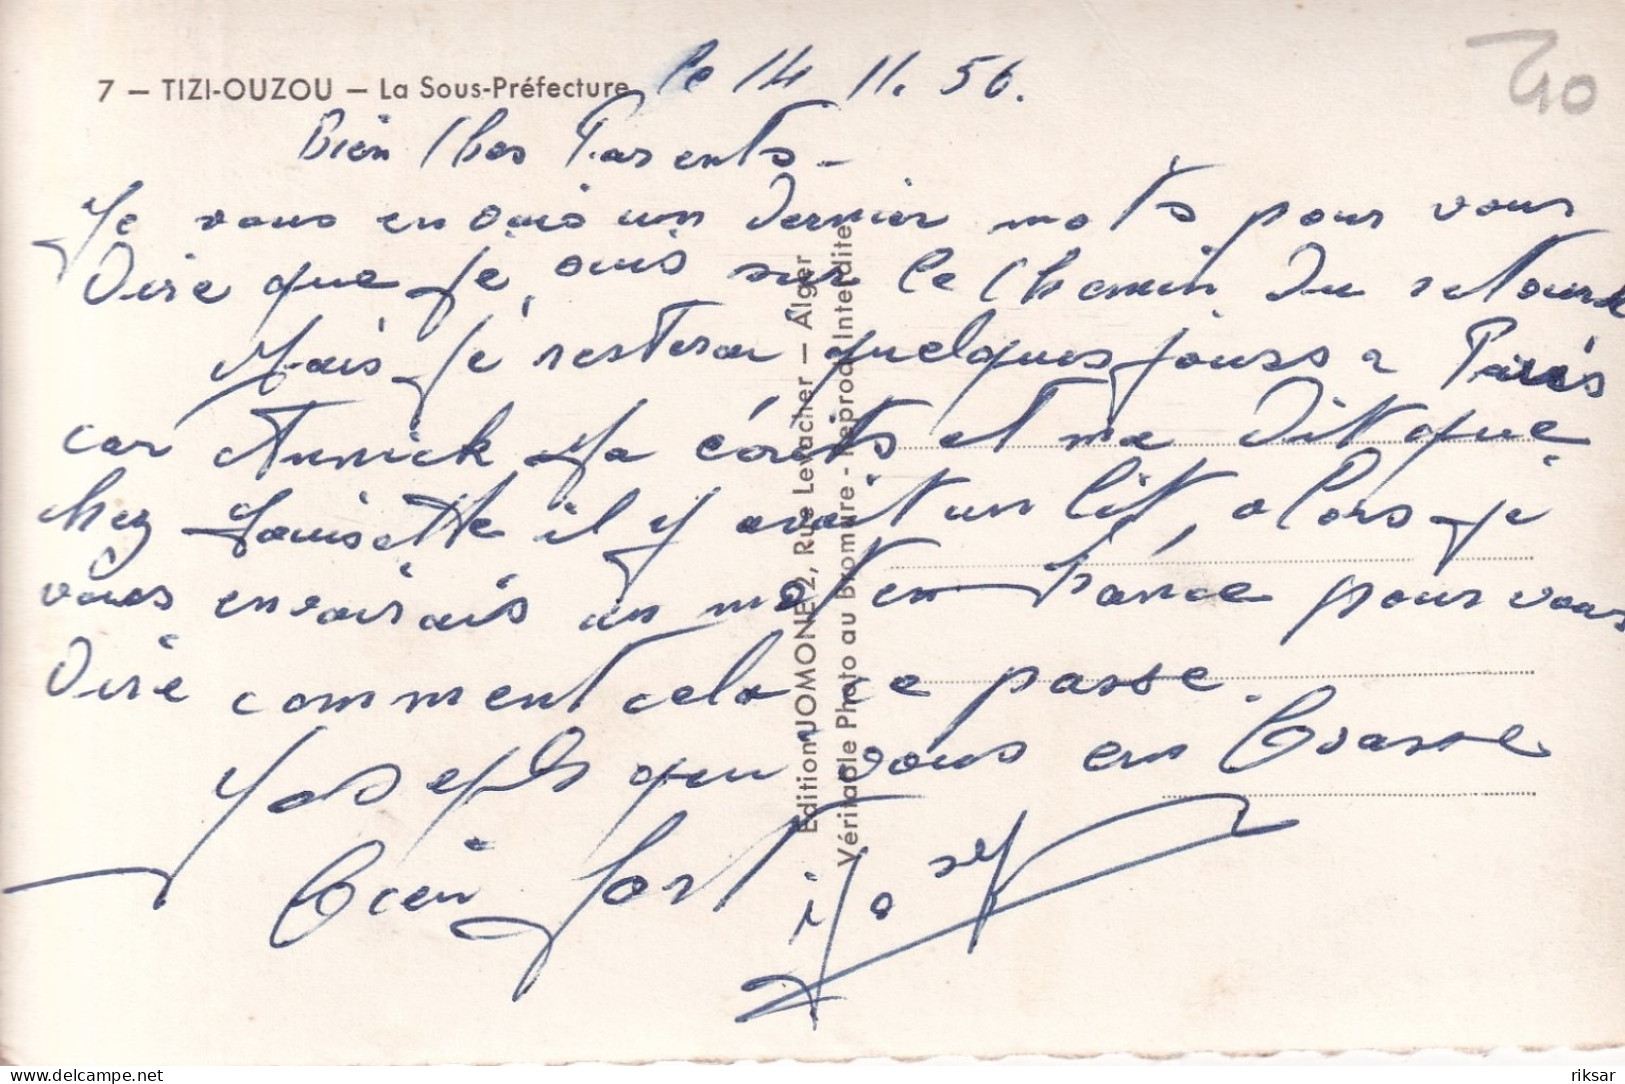 7 — TIZI-OUZOU — La Sous-Préfecture
le 14 11. 56.
40
Bien Chers Parents -
Je vous envois un dernier mots pour vous
Dire que je suis sur le Chemin du retour
Mais je resterai quelques jours a Paris
car Annick Ma écrits et ma Dit que
chez Louisette il y avait un lit, alors je
vous envoirais un mot en France pour vous
Dire comment cela ce passe.
Joseph qui vous embrasse
bien fort
Edition JOMONE 2, Rue Levacher — Alger
Véritable Photo au Bromure - Reprod. Interdite
riksar